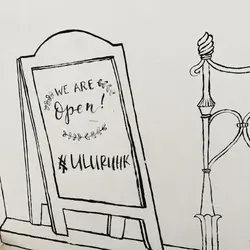 WE ARE
Open!
#ULURUHK